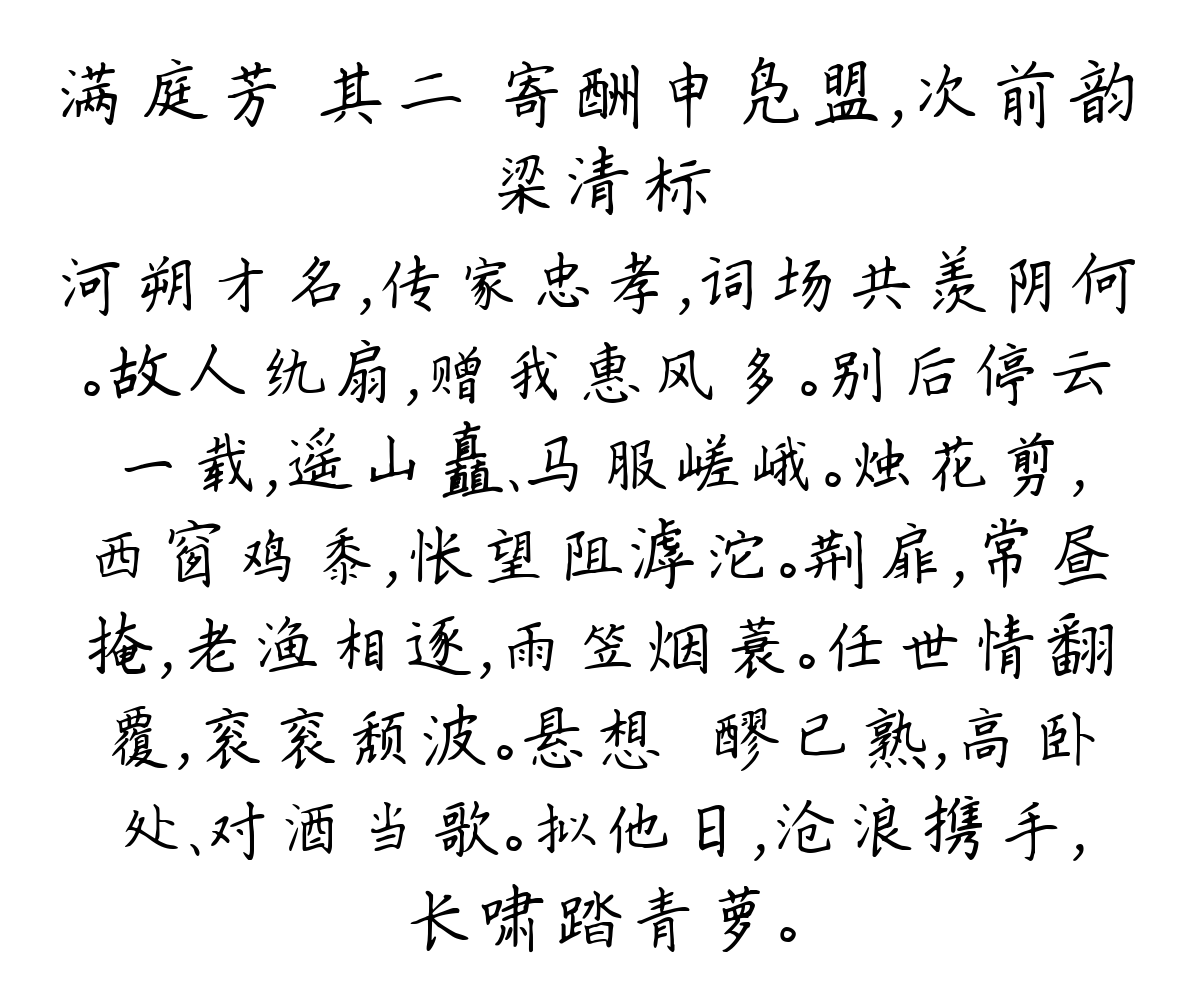 满庭芳 其二 寄酬申凫盟,次前韵
梁清标
河朔才名,传家忠孝,词场共羡阴何
。故人纨扇,赠我惠风多。别后停云
一载,遥山矗、马服嵯峨。烛花剪,
西窗鸡黍,怅望阻滹沱。荆扉,常昼
掩,老渔相逐,雨笠烟蓑。任世情翻
覆,衮衮颓波。悬想 醪已熟,高卧
处、对酒当歌。拟他日,沧浪携手,
长啸踏青萝。